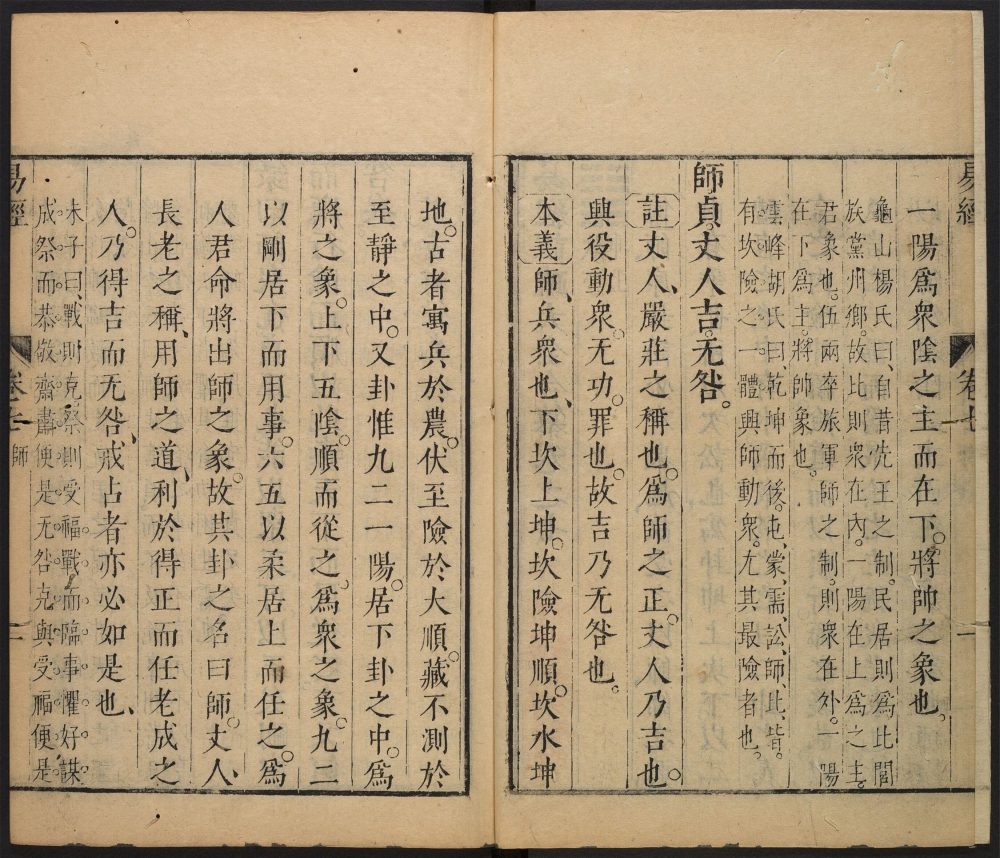 易經
卷七
一
一陽爲衆陰之主而在下。將帥之象也。
龜山楊氏曰、自昔先王之制。民居則爲比閭
族黨州鄉。故比則衆在內。一陽在上爲之主。
君象也。伍兩卒旅軍師之制。則衆在外。一陽
在下爲主。將帥象也。
雲峰胡氏曰、乾坤而後。屯、蒙、需、訟、師、比、皆
有坎險之一體興師動衆。尤其最險者也。
師貞。丈人吉。无咎。
註丈人、嚴莊之稱也。爲師之正。丈人乃吉也。
興役動衆。无功。罪也。故吉乃无咎也。
本義師、兵衆也、下坎上坤。坎險坤順。坎水坤
地。古者寓兵於農。伏至險於大順。藏不測於
至靜之中。又卦惟九二一陽。居下卦之中。爲
將之象。上下五陰。順而從之。爲衆之象。九二
以剛居下而用事。六五以柔居上而任之。爲
人君命將出師之象。故其卦之名曰師。丈人、
長老之稱、用師之道、利於得正而任老成之
人。乃得吉而无咎、戒占者亦必如是也、
朱子曰、戰則克。祭則受福。戰而臨事懼。好謀
成。祭而恭敬齋肅。便是无咎克與受福便是
易經
卷七
師